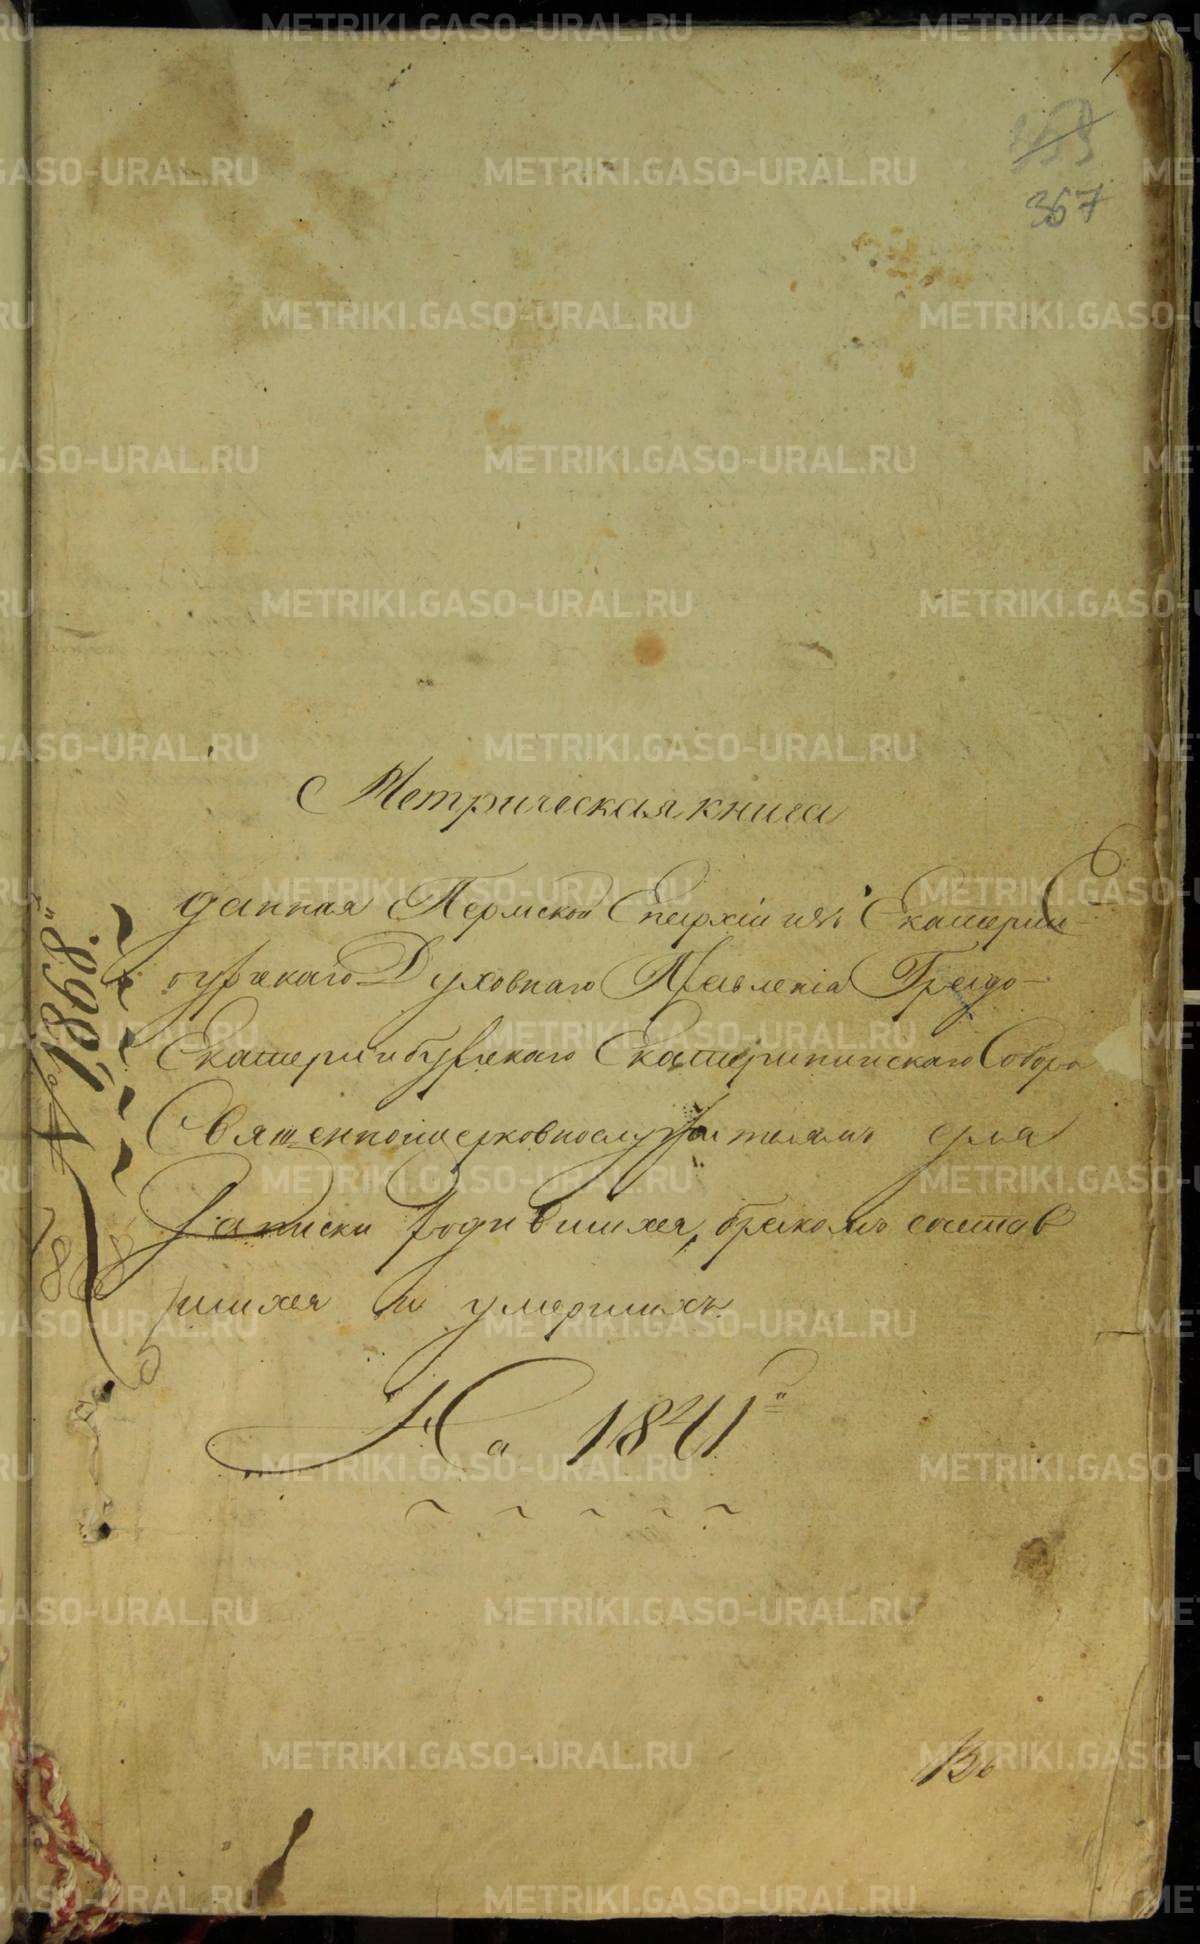 1
367
Метрическая книга
данная Пермской Епархіи изъ Екатерин-
бургскаго Духовнаго Правленія Градо-
Екатеринбургскаго Екатерининскаго Собора
Священноцерковнослужителямъ для
Записки родившихся, бракомъ состав
шихся и умершихъ
На 1841"
№ 1868"
1868
METRIKI.GASO-URAL.RU